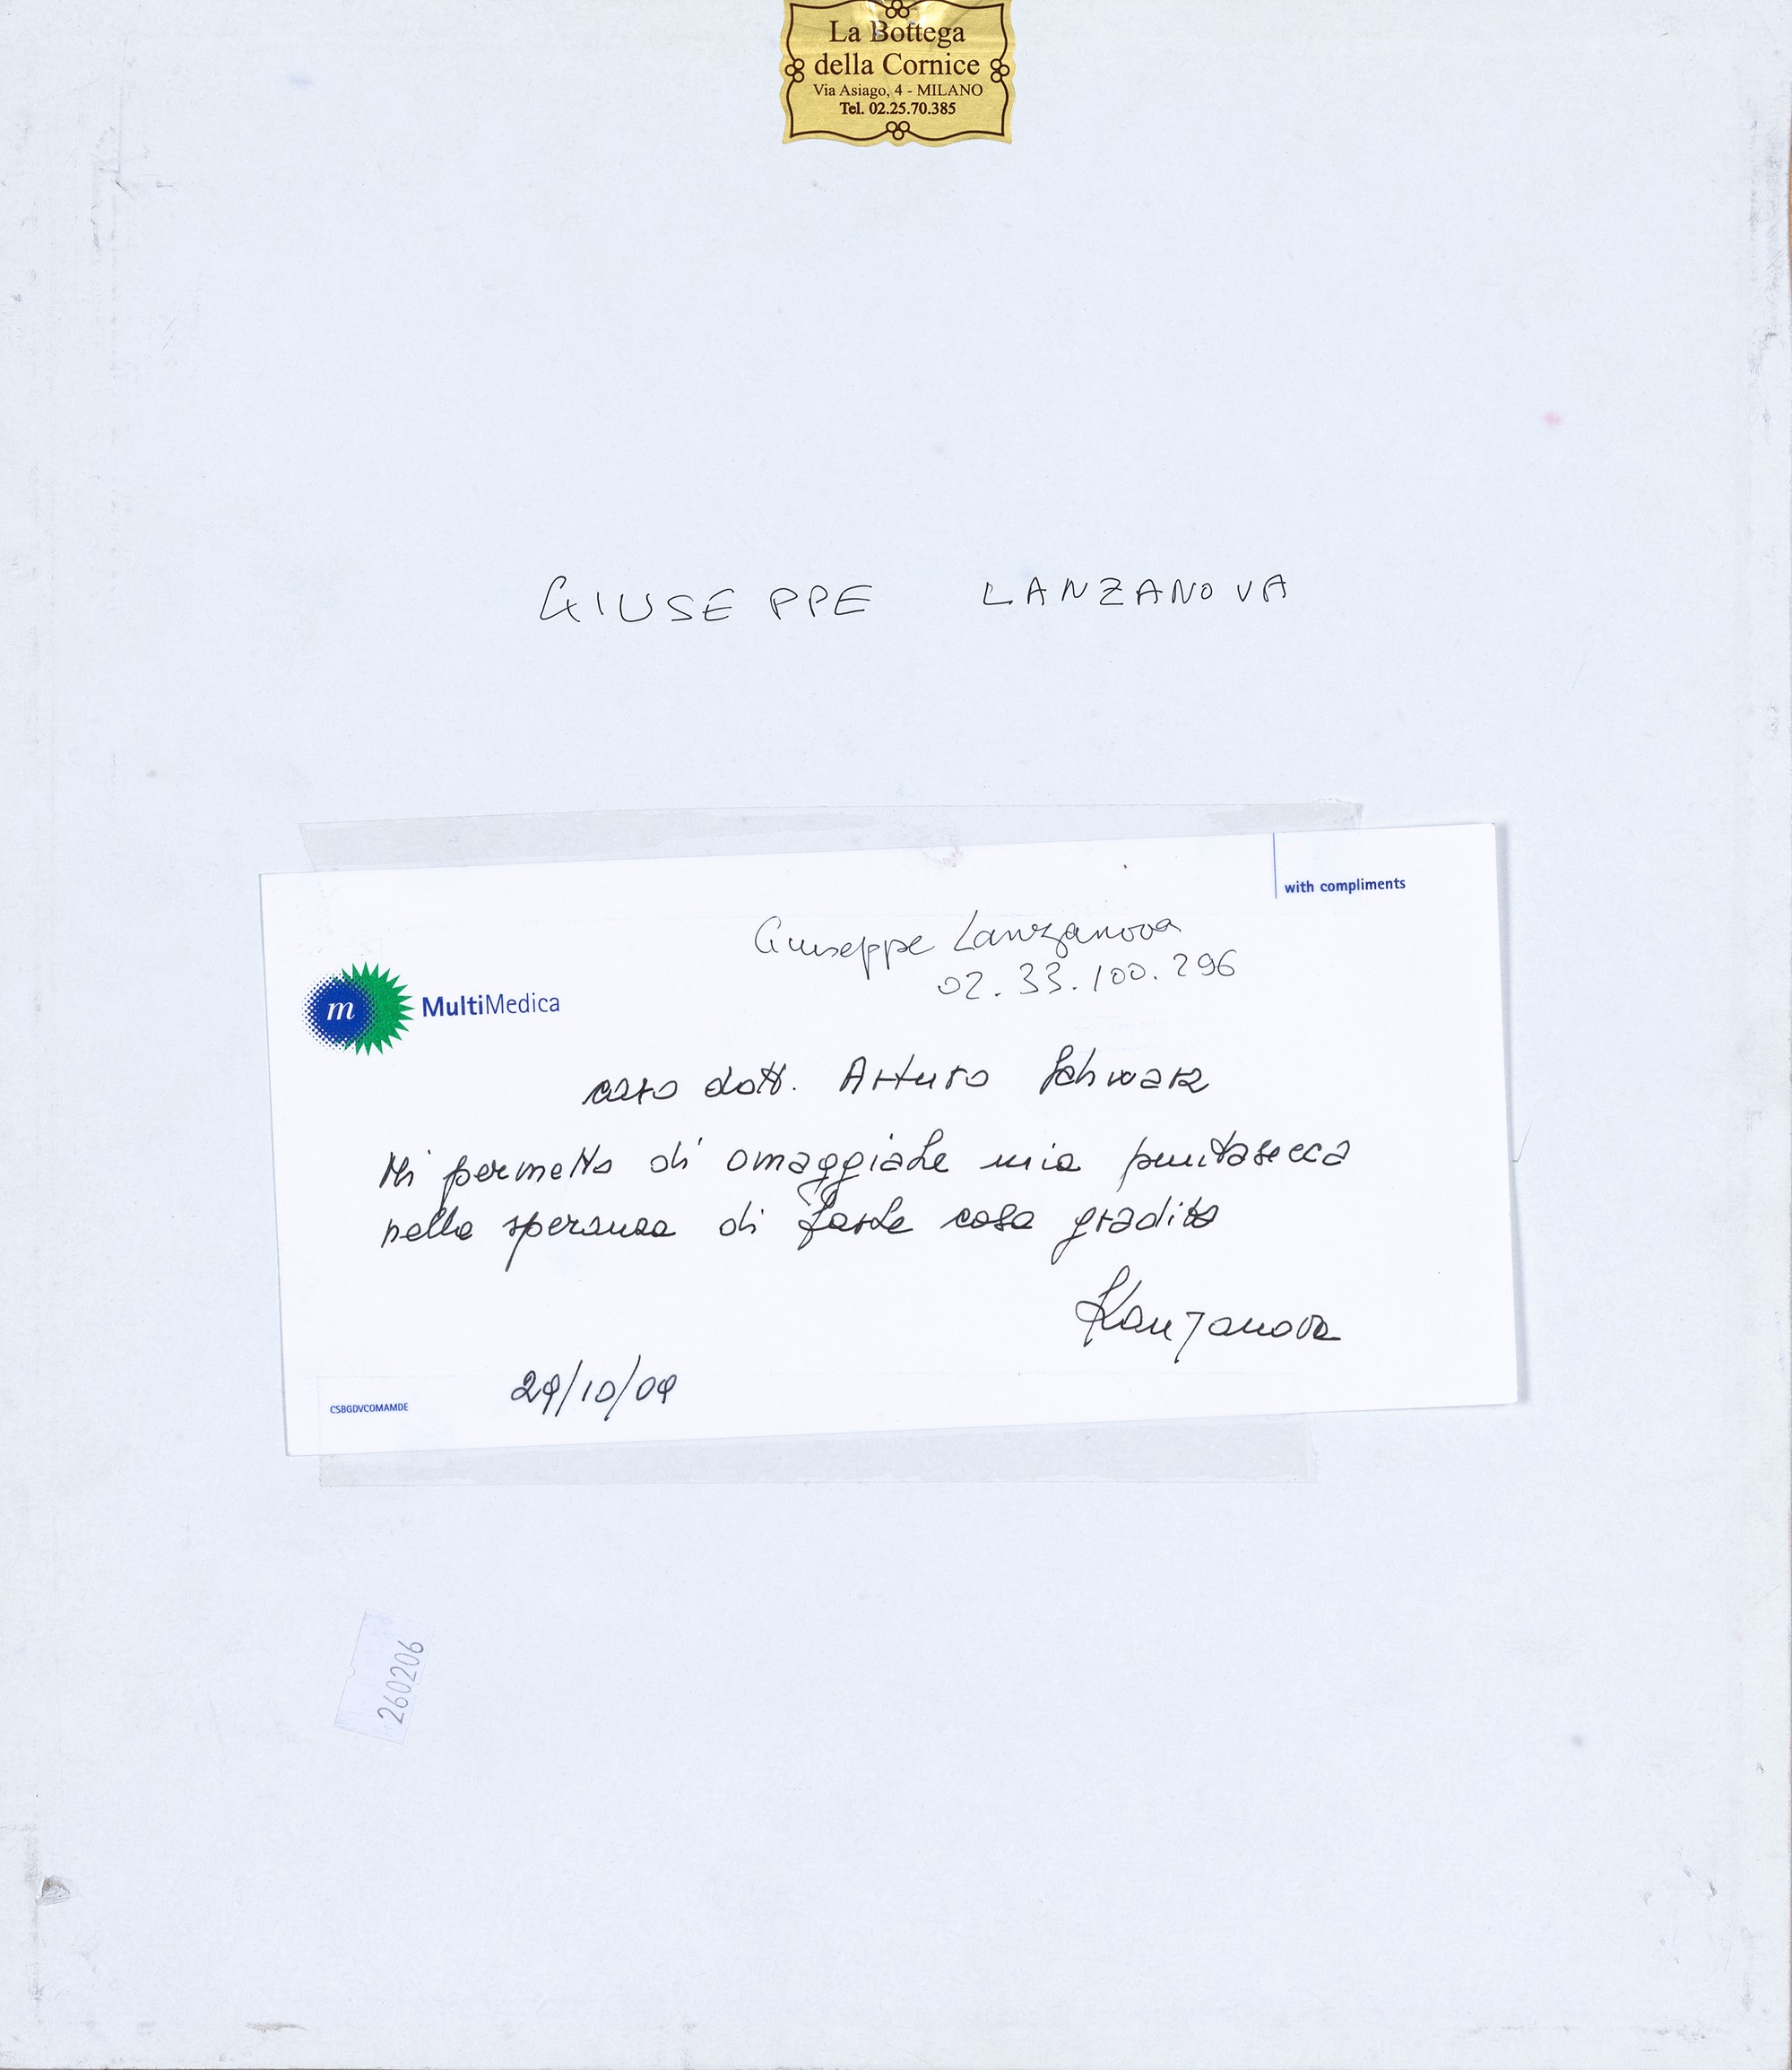 La Bottega
della Cornice
Via Asiago, 4 - MILANO
Tel. 02.25.70.385
GIUSEPPE LANZANOVA
with compliments
Giuseppe Lanzanova
02.33.100.296
m
MultiMedica
caro dott. Arturo Schwarz
Mi permetto di omaggiarLe mia puntasecca
nella speranza di farLe cosa gradita
Lanzanova
29/10/09
CSBGDVCOMAMDE
260206